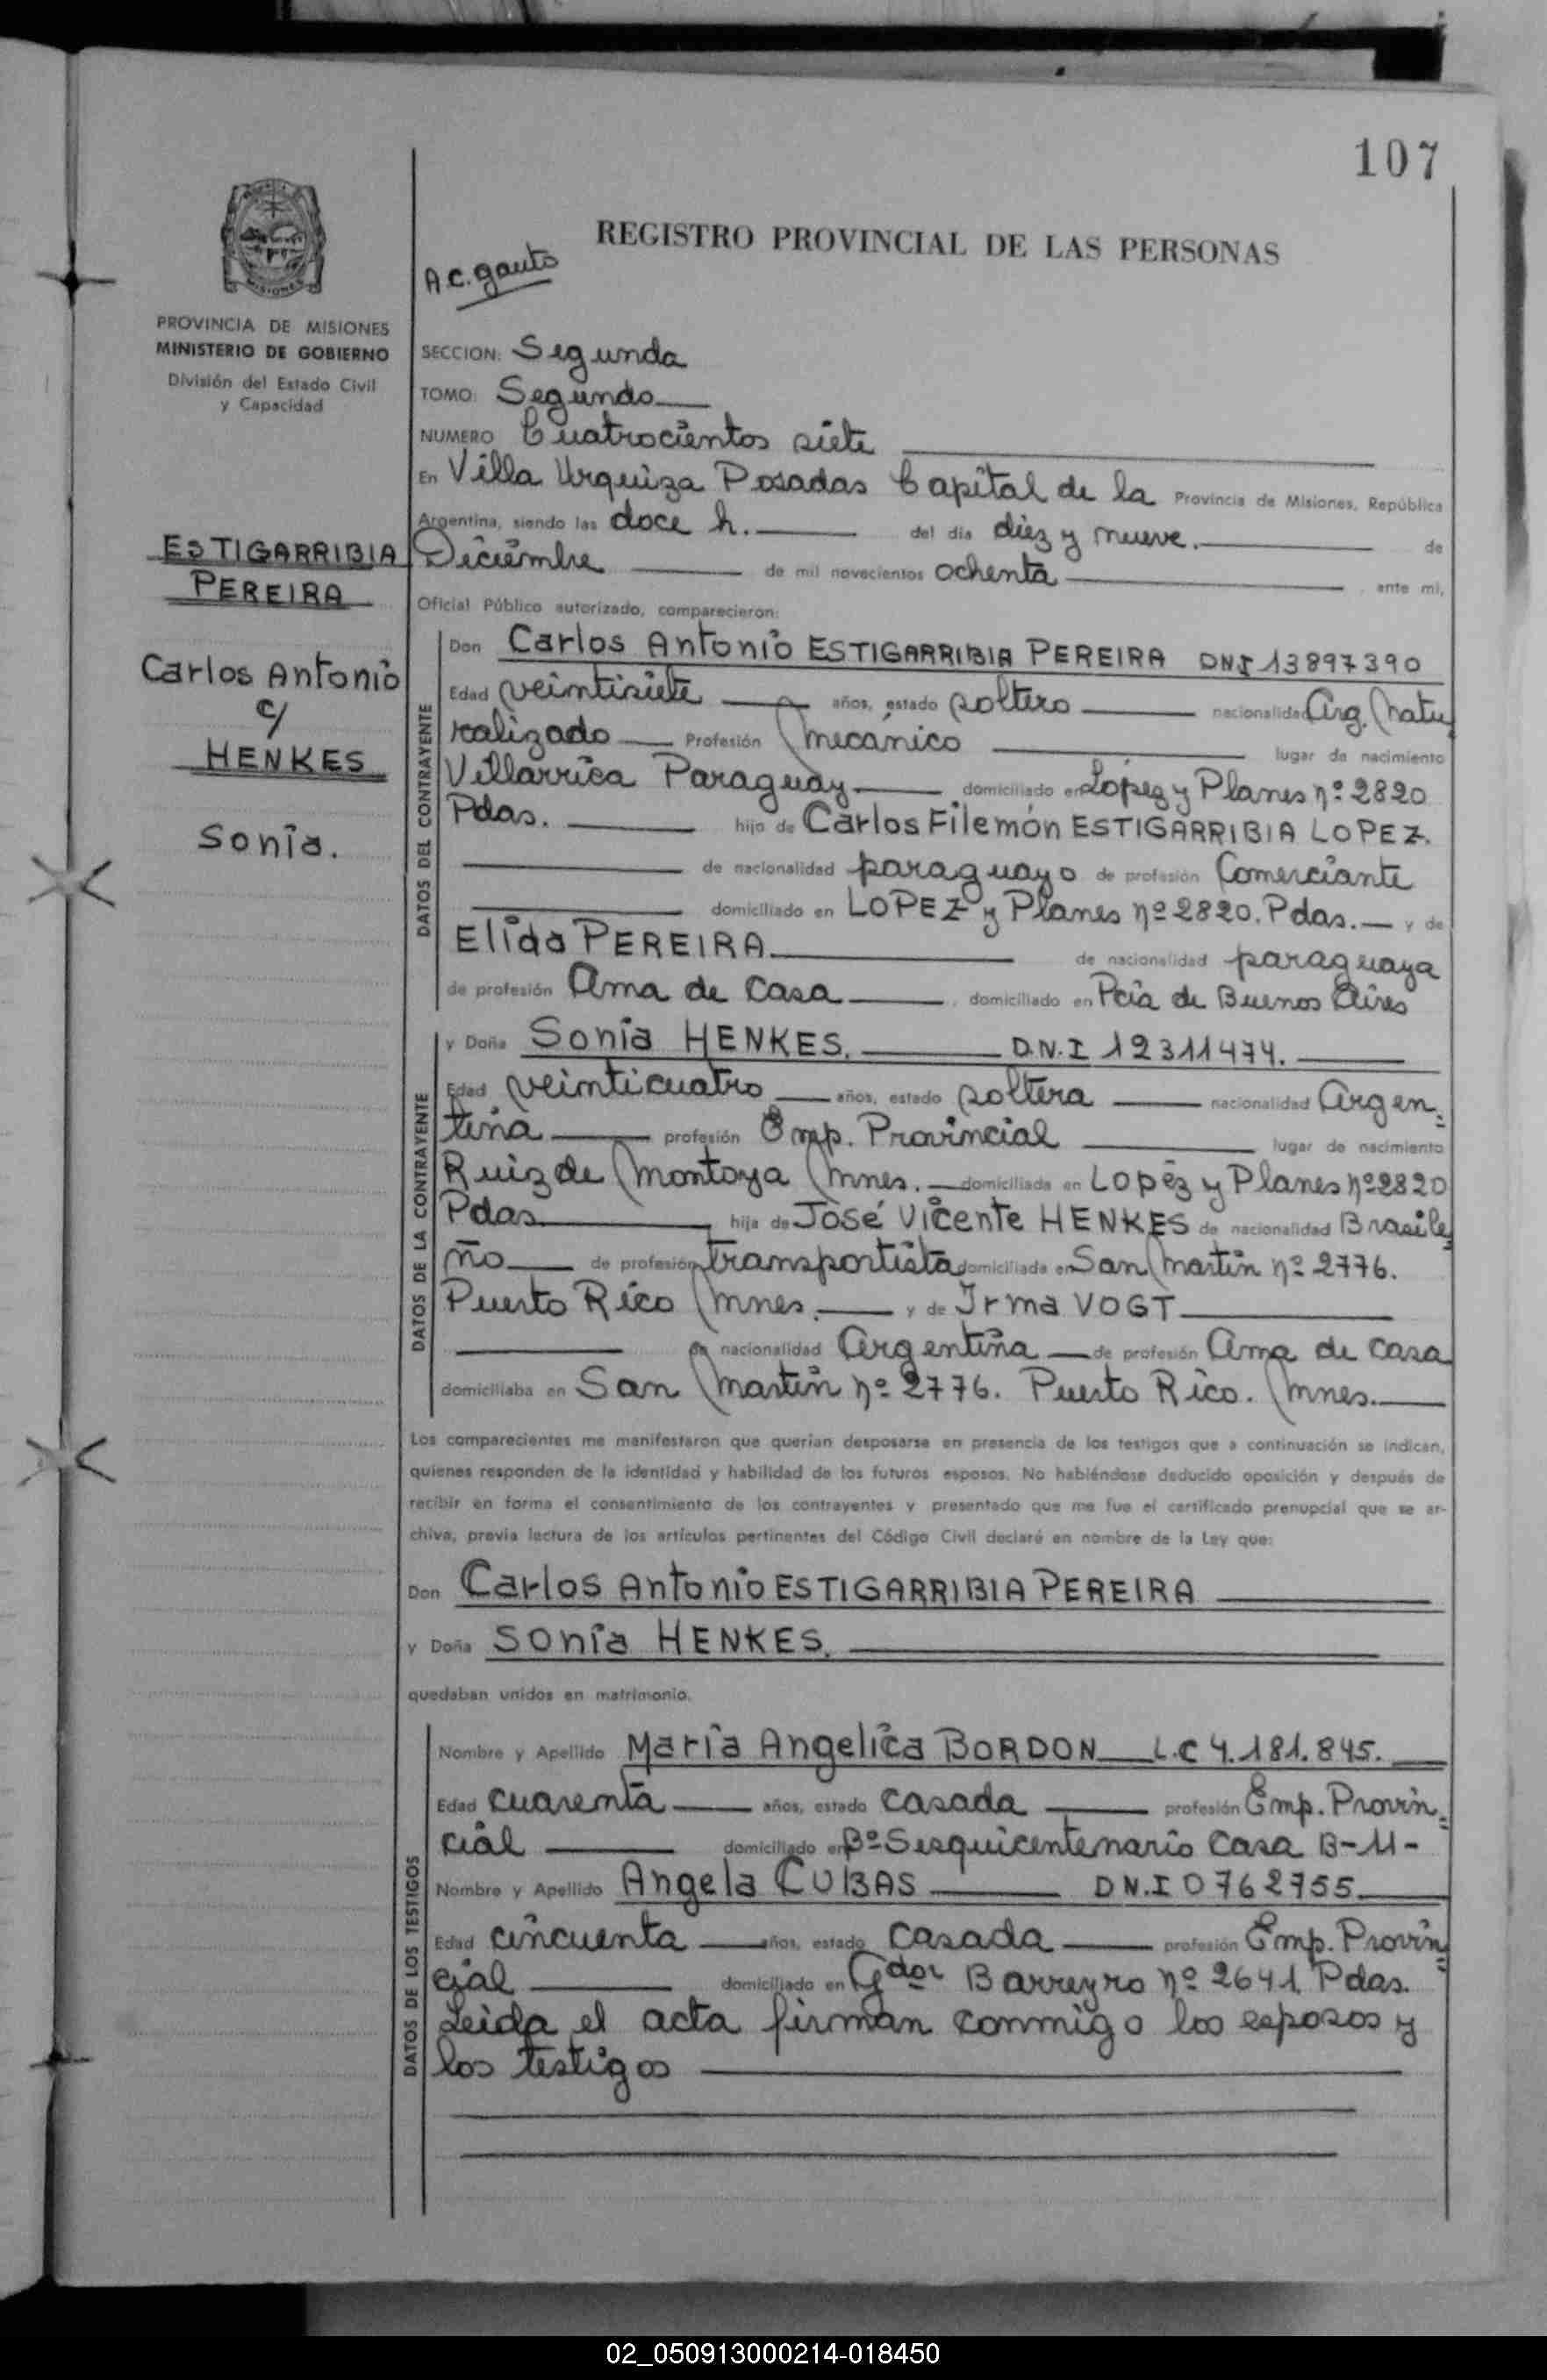 107
REGISTRO PROVINCIAL DE LAS PERSONAS
A.C. gauto
MISIONES
PROVINCIA DE MISIONES
MINISTERIO DE GOBIERNO
División del Estado Civil
y Capacidad
SECCION: Segunda
TOMO: Segundo
NUMERO Cuatrocientos siete
En Villa Urquiza Posadas Capital de la Provincia de Misiones, República
Argentina, siendo las doce h. del día diez y nueve. de
Diciembre de mil novecientos ochenta ante mi,
Oficial Público autorizado, comparecieron:
ESTIGARRIBIA
PEREIRA
Carlos Antonio
c/
HENKES
Sonia.
DATOS DEL CONTRAYENTE
Don Carlos Antonio ESTIGARRIBIA PEREIRA DNI 13897390
Edad veintisiete años, estado soltero nacionalidad Arg. Natu
ralizado Profesión mecánico lugar de nacimiento
Villarrica Paraguay domiciliado en López y Planes nº 2820
Pdas. hijo de Carlos Filemón ESTIGARRIBIA LOPEZ.
de nacionalidad paraguayo de profesión Comerciante
domiciliado en LOPEZ y Planes nº 2820. Pdas. y de
Elida PEREIRA de nacionalidad paraguaya
de profesión Ama de Casa, domiciliado en Pcia de Buenos Aires
DATOS DE LA CONTRAYENTE
y Doña Sonia HENKES. D.N.I 12311474.
Edad veinticuatro años, estado soltera nacionalidad Argen=
tina profesión Emp. Provincial lugar de nacimiento
Ruiz de Montoya Mnes. domiciliada en Lopéz y Planes nº 2820
Pdas hija de José Vicente HENKES de nacionalidad Brasile=
ño de profesión transportista domiciliada en San Martin nº 2776.
Puerto Rico Mnes. y de Irma VOGT
de nacionalidad Argentina de profesión Ama de casa
domiciliaba en San Martin nº 2776. Puerto Rico. Mnes.
Los comparecientes me manifestaron que querían desposarse en presencia de los testigos que a continuación se indican,
quienes responden de la identidad y habilidad de los futuros esposos. No habiéndose deducido oposición y después de
recibir en forma el consentimiento de los contrayentes y presentado que me fue el certificado prenupcial que se ar-
chiva, previa lectura de los artículos pertinentes del Código Civil declaré en nombre de la Ley que:
Don Carlos Antonio ESTIGARRIBIA PEREIRA
y Doña Sonia HENKES.
quedaban unidos en matrimonio.
DATOS DE LOS TESTIGOS
Nombre y Apellido Maria Angelica BORDON L.C 4.181.845.
Edad cuarenta años, estado casada profesión Emp. Provin=
cial domiciliado en Bº Sesquicentenario Casa B-11-
Nombre y Apellido Angela CUBAS DN.I 0762755
Edad cincuenta años, estado casada profesión Emp. Provin=
cial domiciliado en Gdor Barreyro nº 2641. Pdas.
Leida el acta firman conmigo los esposos y
los testigos
02_050913000214-018450